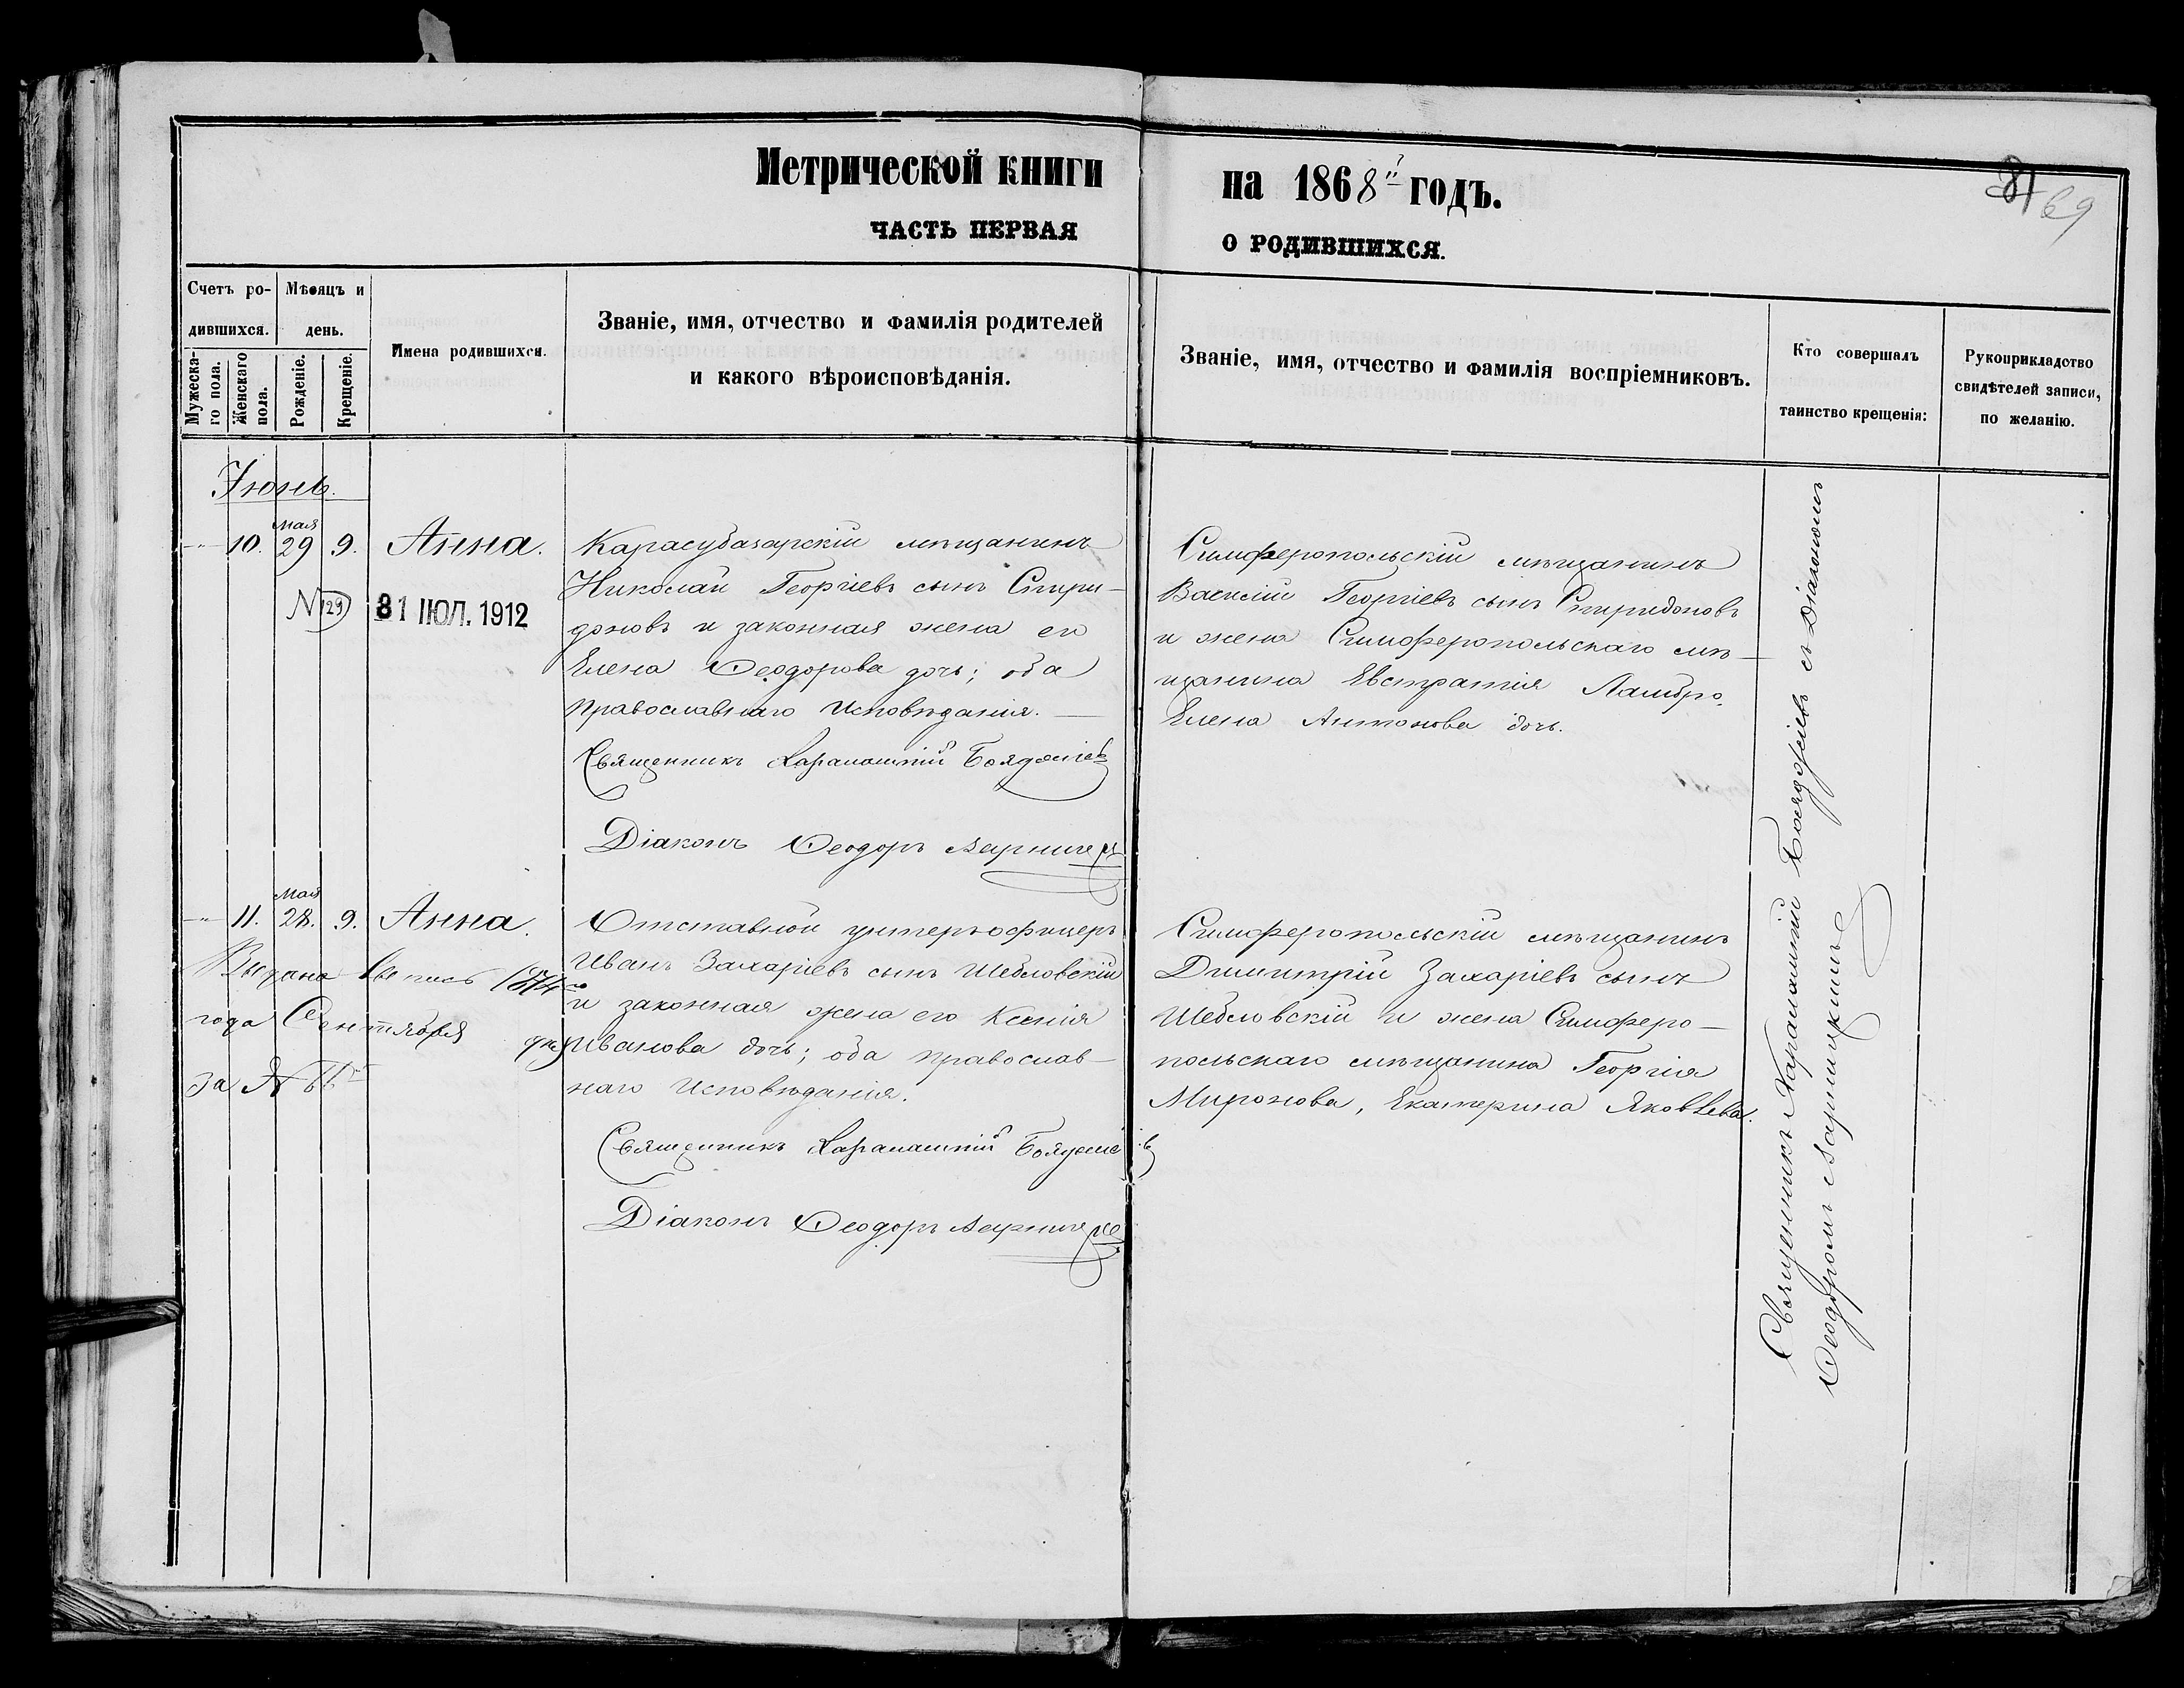 Метрической книги на 1868й годъ.
ЧАСТЬ ПЕРВАЯ О РОДИВШИХСЯ.
69
Счетъ ро-
дившихся.
Мужеска-
го пола.
Женскаго
пола.
Мѣсяцъ и
день.
Рожденіе.
Крещеніе.
Имена родившихся.
Званіе, имя, отчество и фамилія родителей
и какого вѣроисповѣданія.
Званіе, имя, отчество и фамилія воспріемниковъ.
Кто совершалъ
таинство крещенія:
Рукоприкладство
свидѣтелей записи,
по желанію.
Іюнь.
Мая
10. 29 9. Анна.
N 129
31 ІЮЛ. 1912
Карасубазарскій мѣщанинъ
Николай Георгіевъ сынъ Спири-
доновъ и законная жена его
Елена Ѳеодорова дочь; оба
православнаго Исповѣданія.
Священникъ Харалампій
Діаконъ Ѳеодоръ
Симферопольскій мѣщанинъ
Василій Георгіевъ сынъ Спиридоновъ
и жена Симферопольскаго мѣ-
щанина Евстратія Ламбро,
Елена Антонова дочь.
Мая
11. 28. 9. Анна.
Выдана выпись 1874го
года Сентября дня
за №
Отставной унтеръ-офицеръ
Иванъ Захаріевъ сынъ Шебловскій
и законная жена его Ксенія
Иванова дочь; оба православ-
наго Исповѣданія.
Священникъ Харалампій
Діаконъ Ѳеодоръ
Симферопольскій мѣщанинъ
Димитрій Захаріевъ сынъ
Шебловскій и жена Симферо-
польскаго мѣщанина Георгія
Миронова, Екатерина Яковлева.
Священникъ Харалампій съ Діакономъ
Ѳеодоромъ